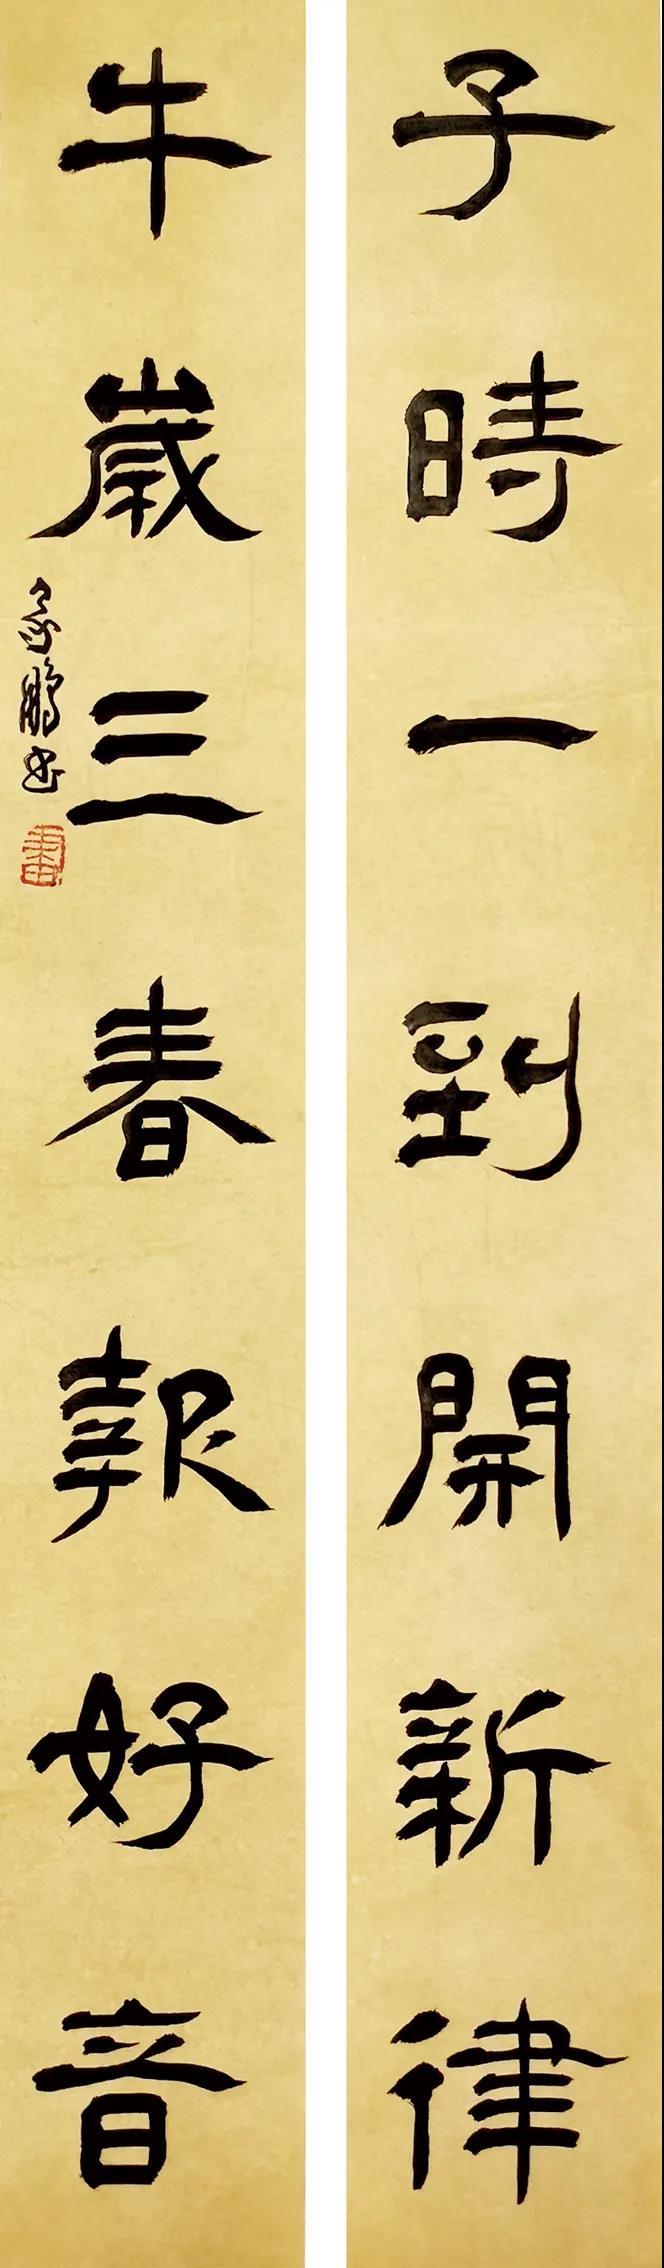 子時一到開新律
牛歲三春報好音
鵬書